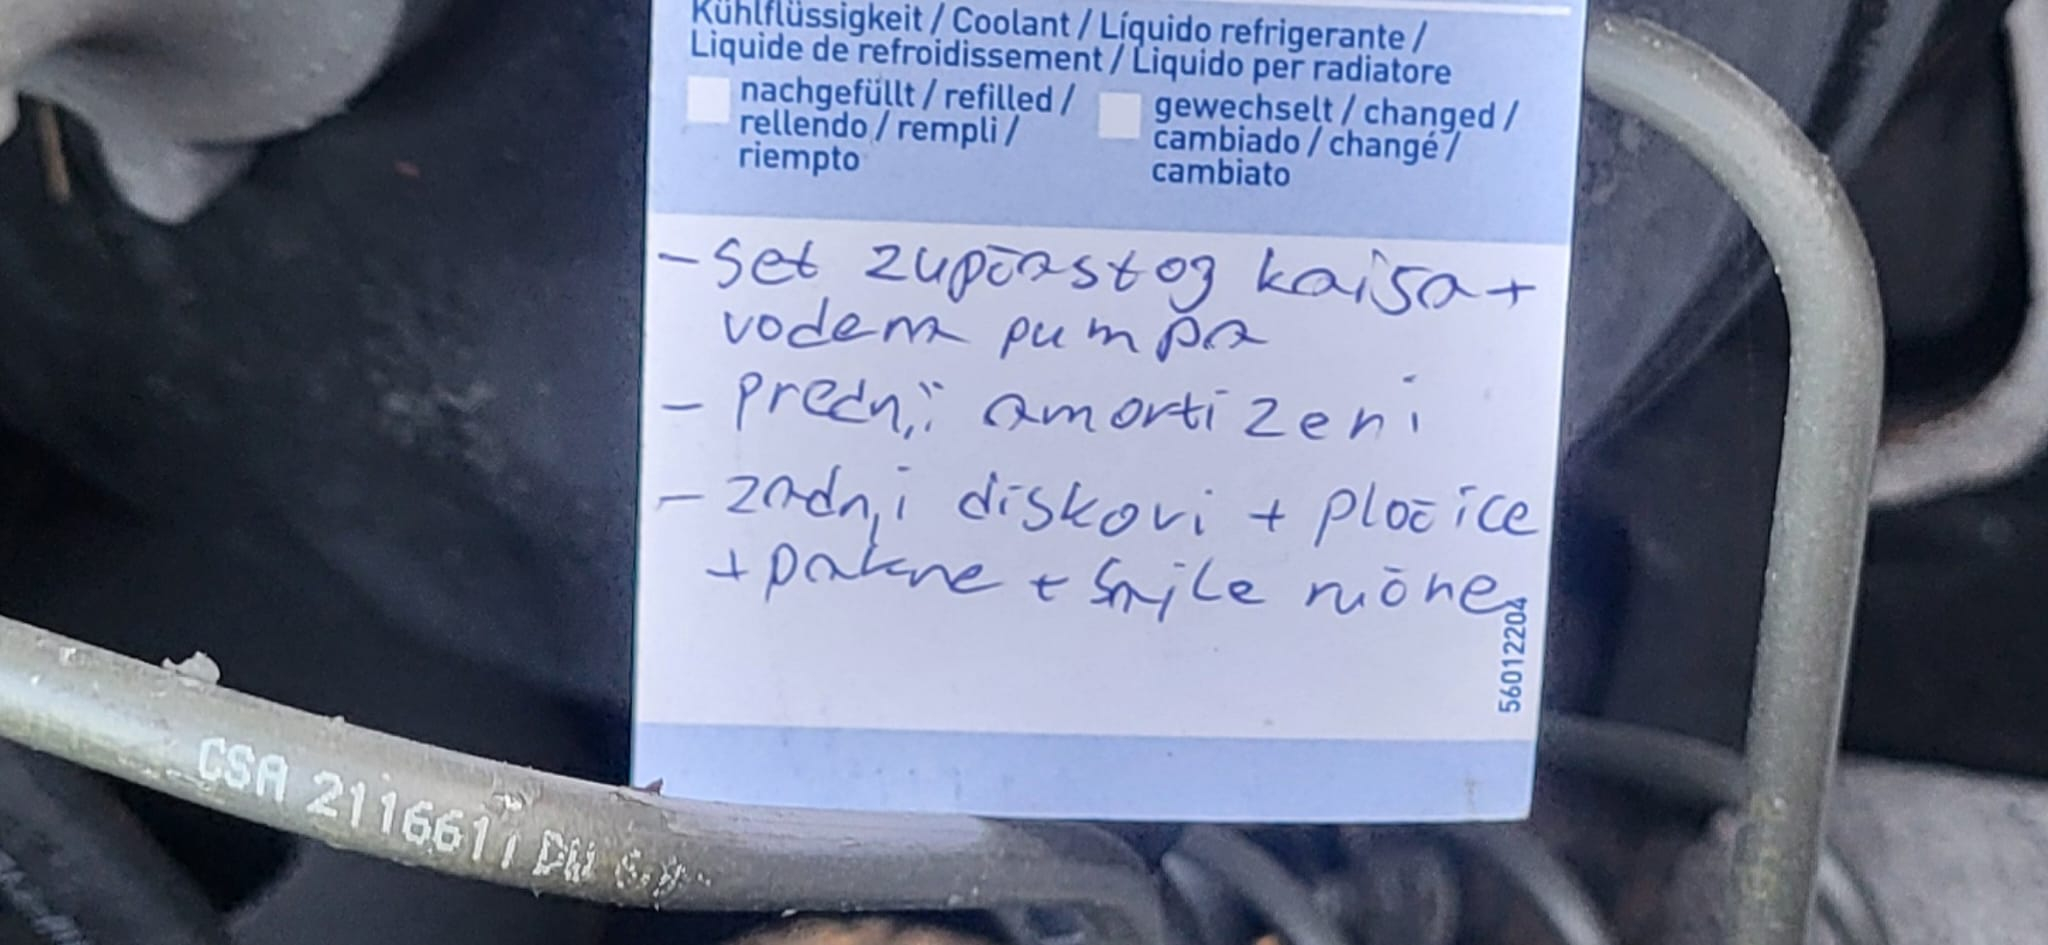 Kühlflüssigkeit / Coolant / Líquido refrigerante /
Liquide de refroidissement / Liquido per radiatore
nachgefüllt / refilled /
rellendo / rempli /
riempto
gewechselt / changed /
cambiado / changé /
cambiato
- set zupčastog kaiša +
vodena pumpa
- prednji amortizeri
- zadnji diskovi + pločice
+ pakne + sajle ručne
560122204
GSA 2116617 DW